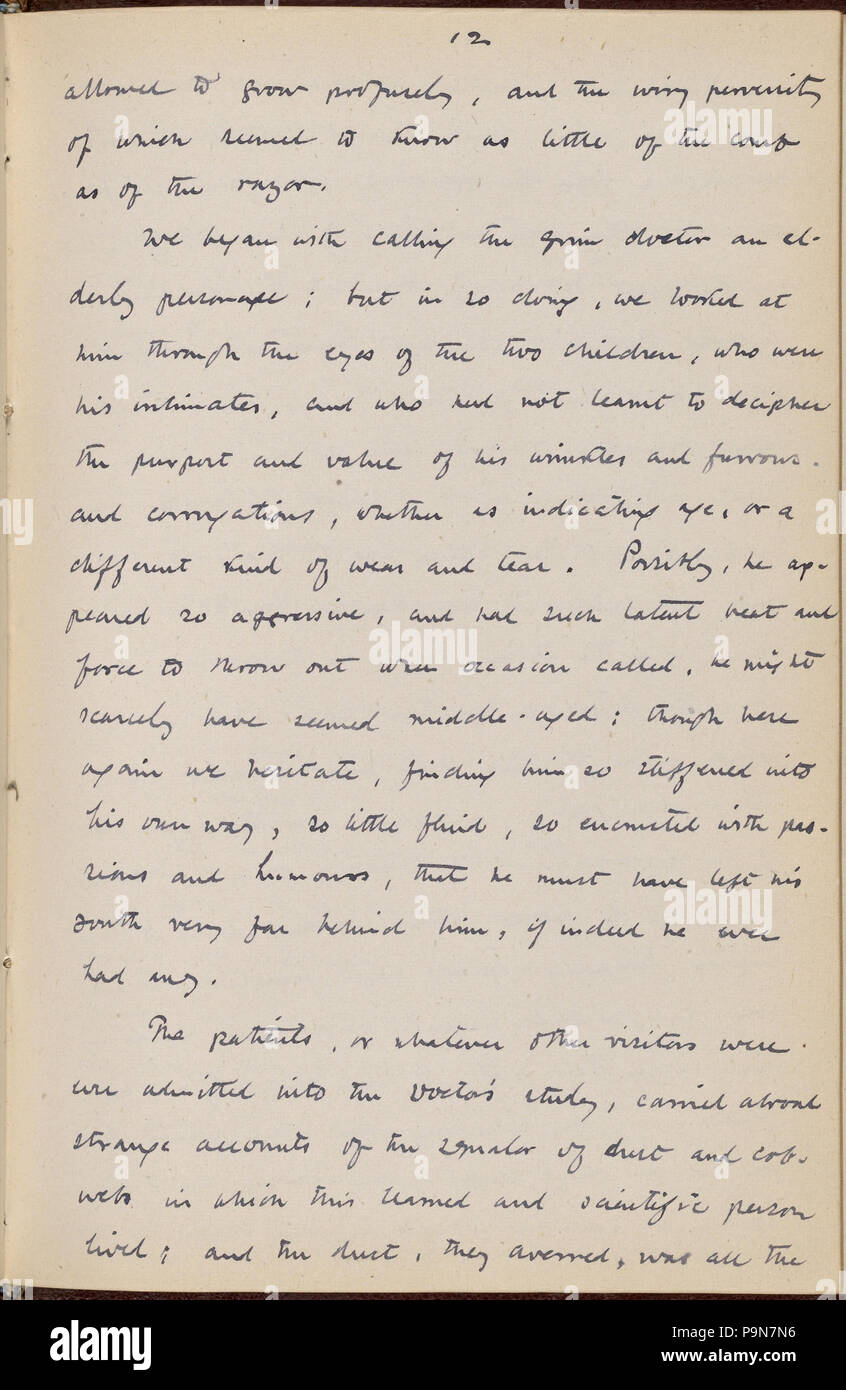 12
allowed to grow profusely, and the wiry perversity
of which seemed to know as little of the comb
as of the razor.
We began with calling the grim doctor an el-
derly personage; but in so doing, we looked at
him through the eyes of the two children, who were
his intimates, and who had not learnt to decipher
the purport and value of his wrinkles and furrows
and corrugations, whether as indicating age, or a
different kind of wear and tear. Possibly, he ap-
peared so aggressive, and had such latent heat and
force to throw out when occasion called, he might
scarcely have seemed middle-aged; though here
again we hesitate, finding him so stiffened into
his own way, so little fluid, so encrusted with pas-
sions and humours, that he must have left his
youth very far behind him, if indeed he ever
had any.
The patients, or whatever other visitors were
ever admitted into the Doctor's study, carried abroad
strange accounts of the squalor of dust and cob-
webs in which this learned and scientific person
lived; and the dust, they averred, was all the
alamy
alamy
Image ID: P9N7N6
www.alamy.com